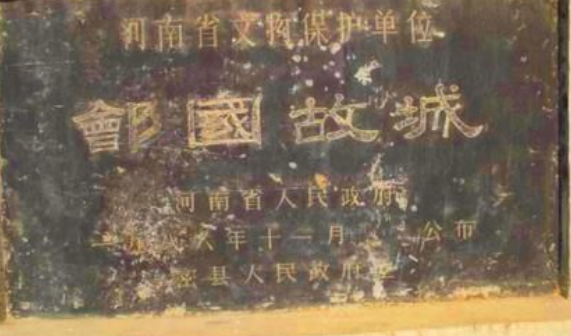 河南省文物保护单位
鄶國故城
河南省人民政府
一九八六年十一月 公布
密县人民政府立